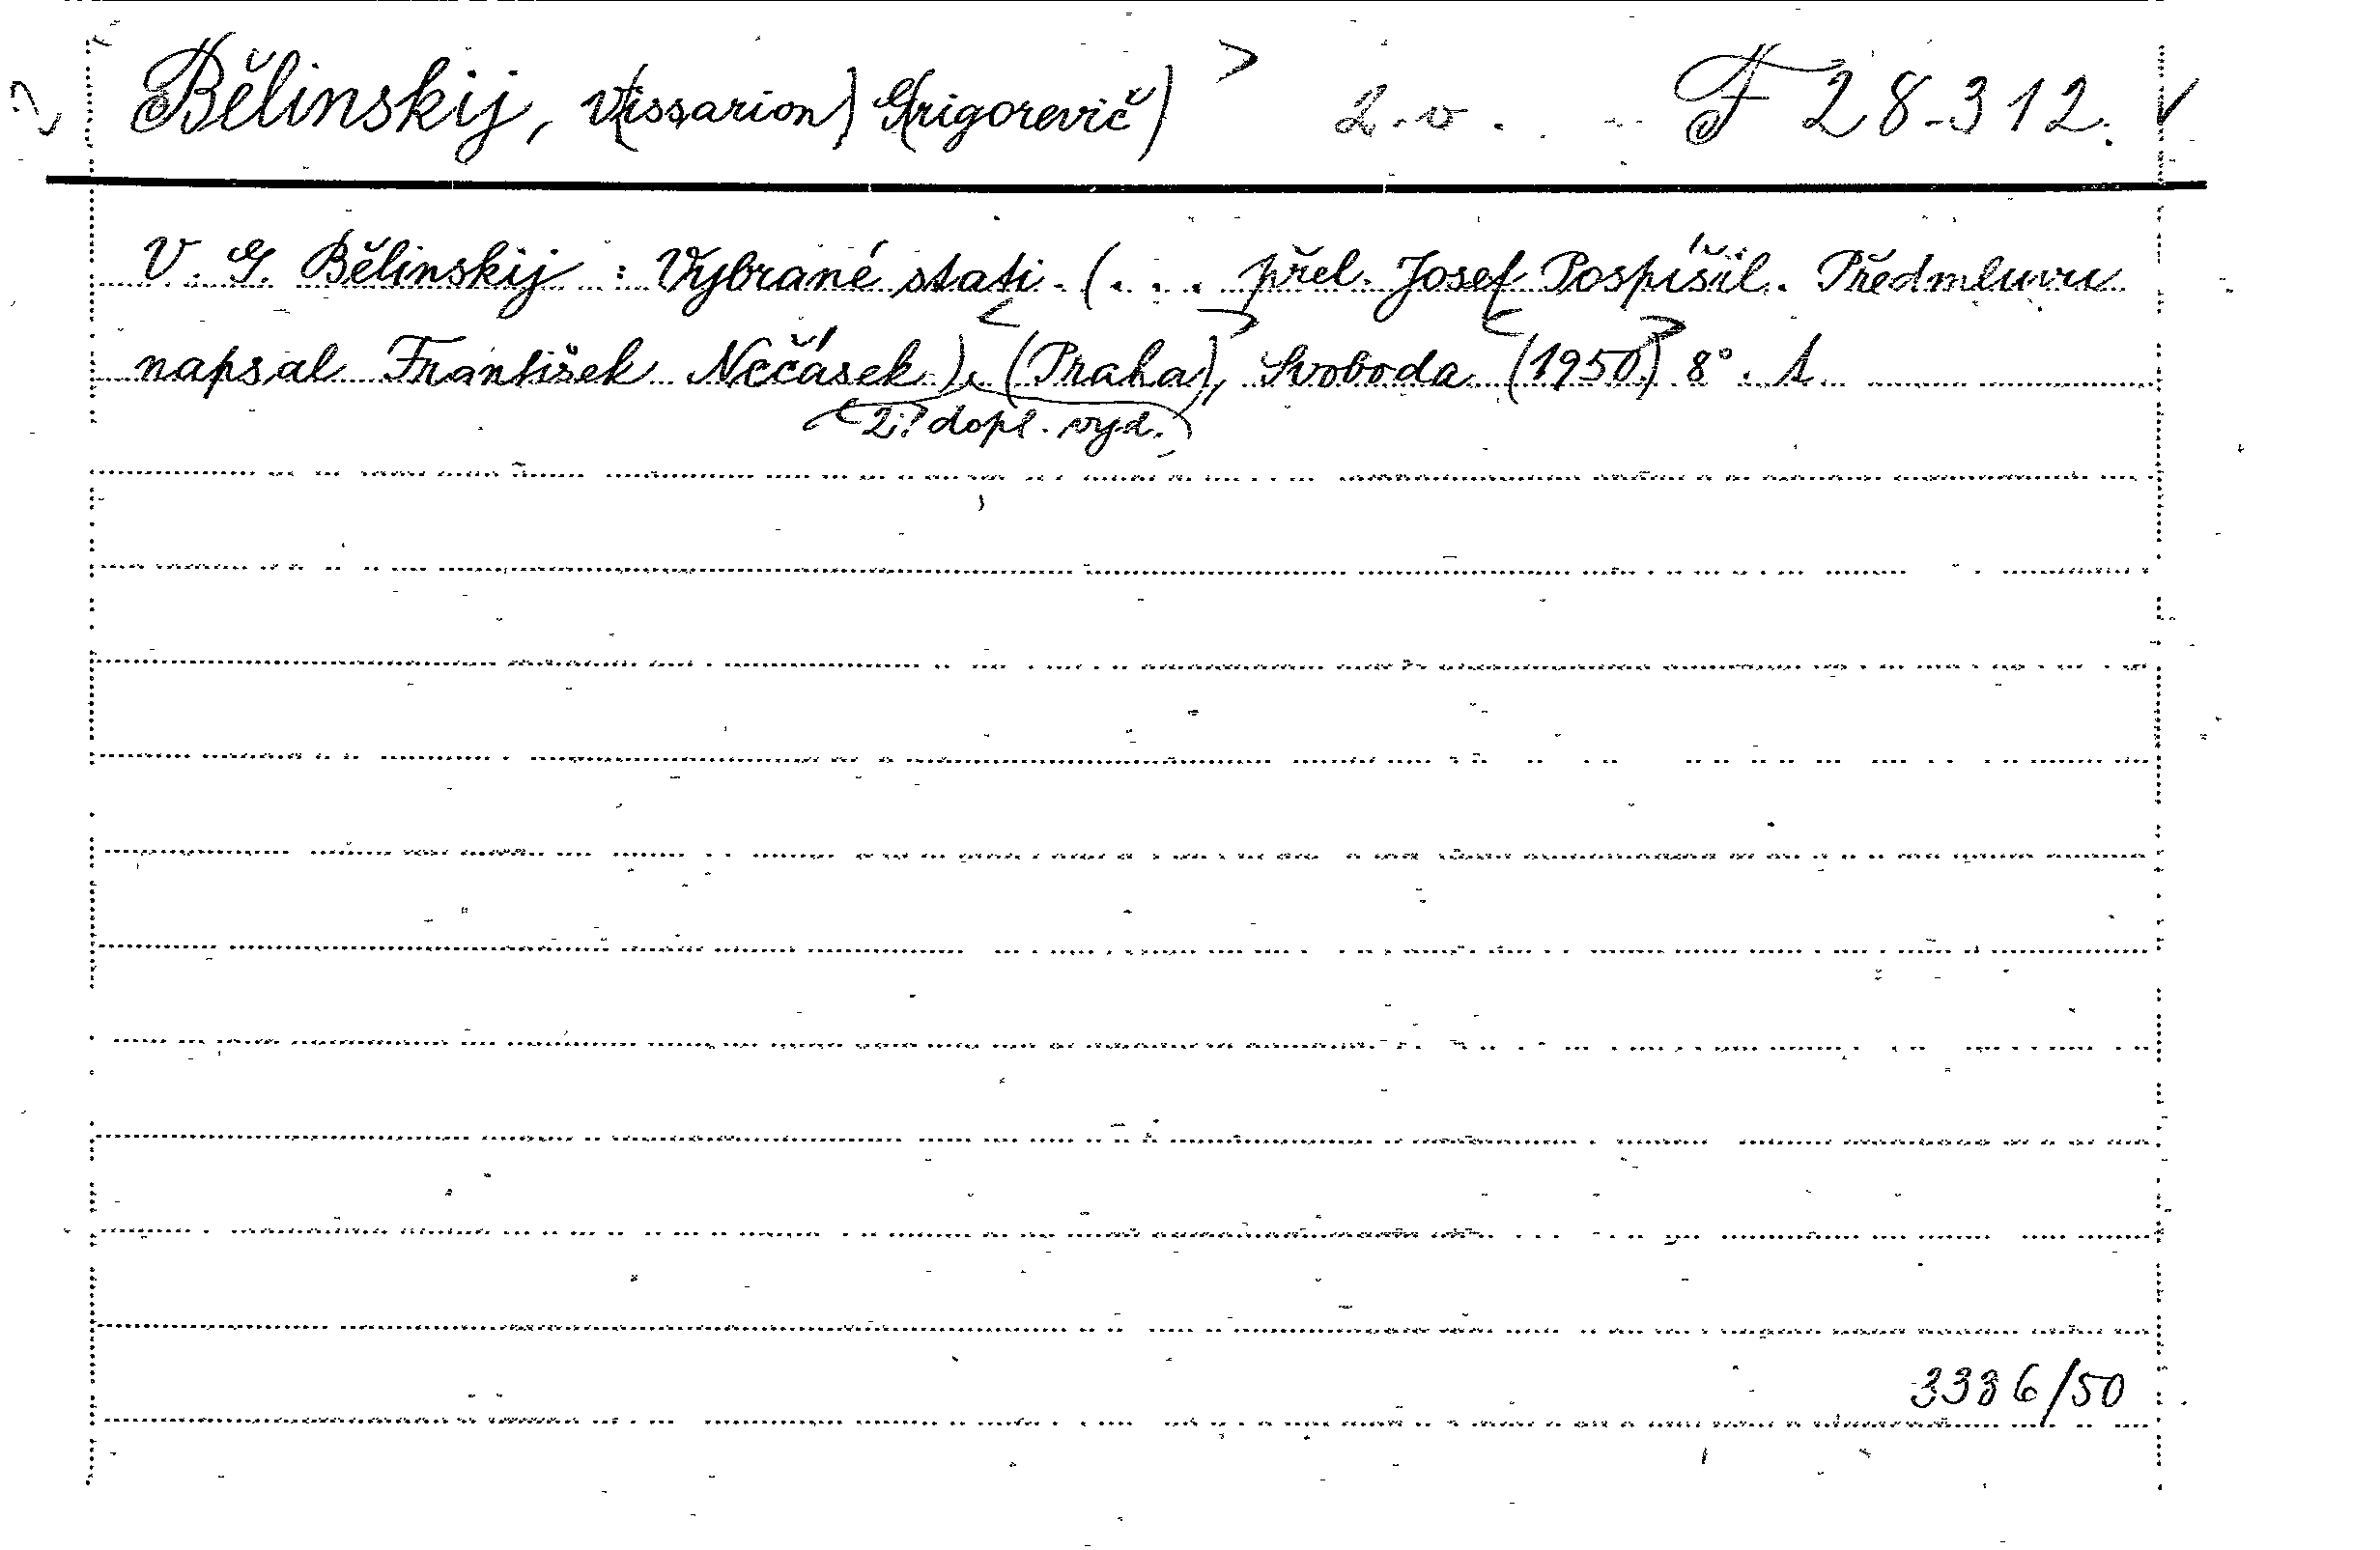 Bělinskij, V(issarion) G(rigorevič) > 2.v. F 28-312.
V. G. Bělinskij : Vybrané stati. (... přel. Josef Pospíšil. Předmluvu
napsal František Nečásek). (Praha), Svoboda (1950) 8°. 1
<2.> dopl. vyd.
3386/50